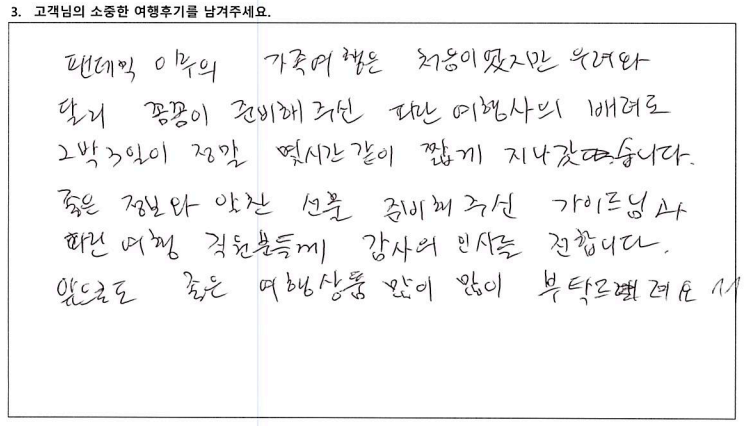 3. 고객님의 소중한 여행후기를 남겨주세요.
팬데믹 이후의 가족여행은 처음이였지만 우려와
달리 꼼꼼이 준비해 주신 파란 여행사의 배려로
2박3일이 정말 몇시간 같이 짧게 지나갔습니다.
좋은 정보와 알찬 선물 준비해 주신 가이드님과
파란 여행 직원분들께 감사의 인사를 전합니다.
앞으로도 좋은 여행상품 많이 많이 부탁드려요